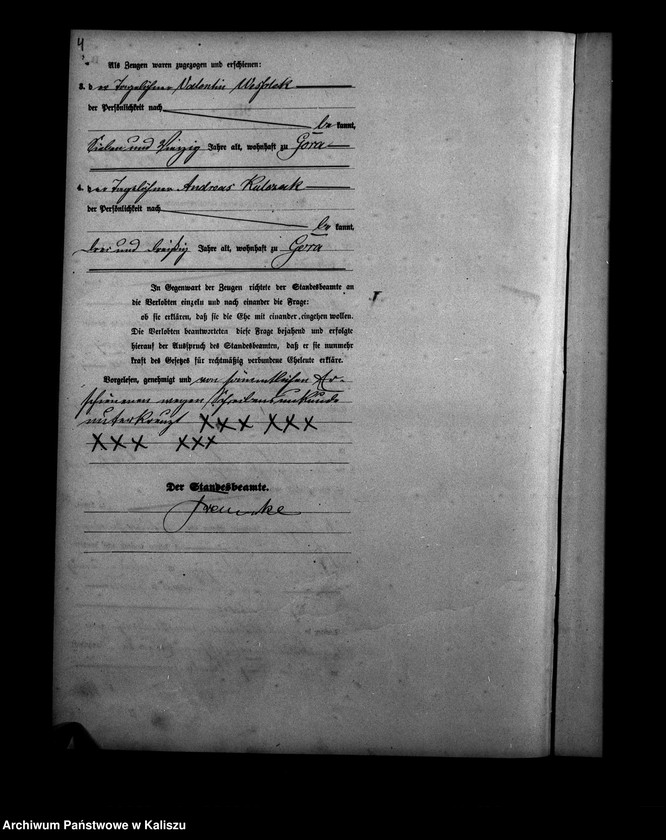 4
Als Zeugen waren zugezogen und erschienen:
3. der Tagelöhner Valentin
der Persönlichkeit nach
be kannt,
Sieben und Vierzig Jahre alt, wohnhaft zu Góra
4. der Tagelöhner Andreas Kulczak
der Persönlichkeit nach
be kannt,
drei und dreißig Jahre alt, wohnhaft zu Góra
In Gegenwart der Zeugen richtete der Standesbeamte an
die Verlobten einzeln und nach einander die Frage:
ob sie erklären, daß sie die Ehe mit einander eingehen wollen.
Die Verlobten beantworteten diese Frage bejahend und erfolgte
hierauf der Ausspruch des Standesbeamten, daß er sie nunmehr
kraft des Gesetzes für rechtmäßig verbundene Eheleute erkläre.
Vorgelesen, genehmigt und von sämmtlichen Er-
schienenen wegen Schreibensunkunde
unterkreuzt XXX XXX
XXX XXX
Der Standesbeamte.
Archiwum Państwowe w Kaliszu